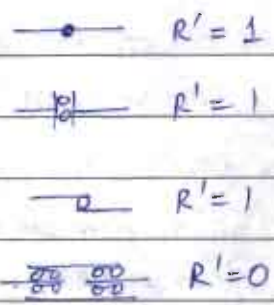 R' = 1
R' = 1
R' = 1
R' = 0